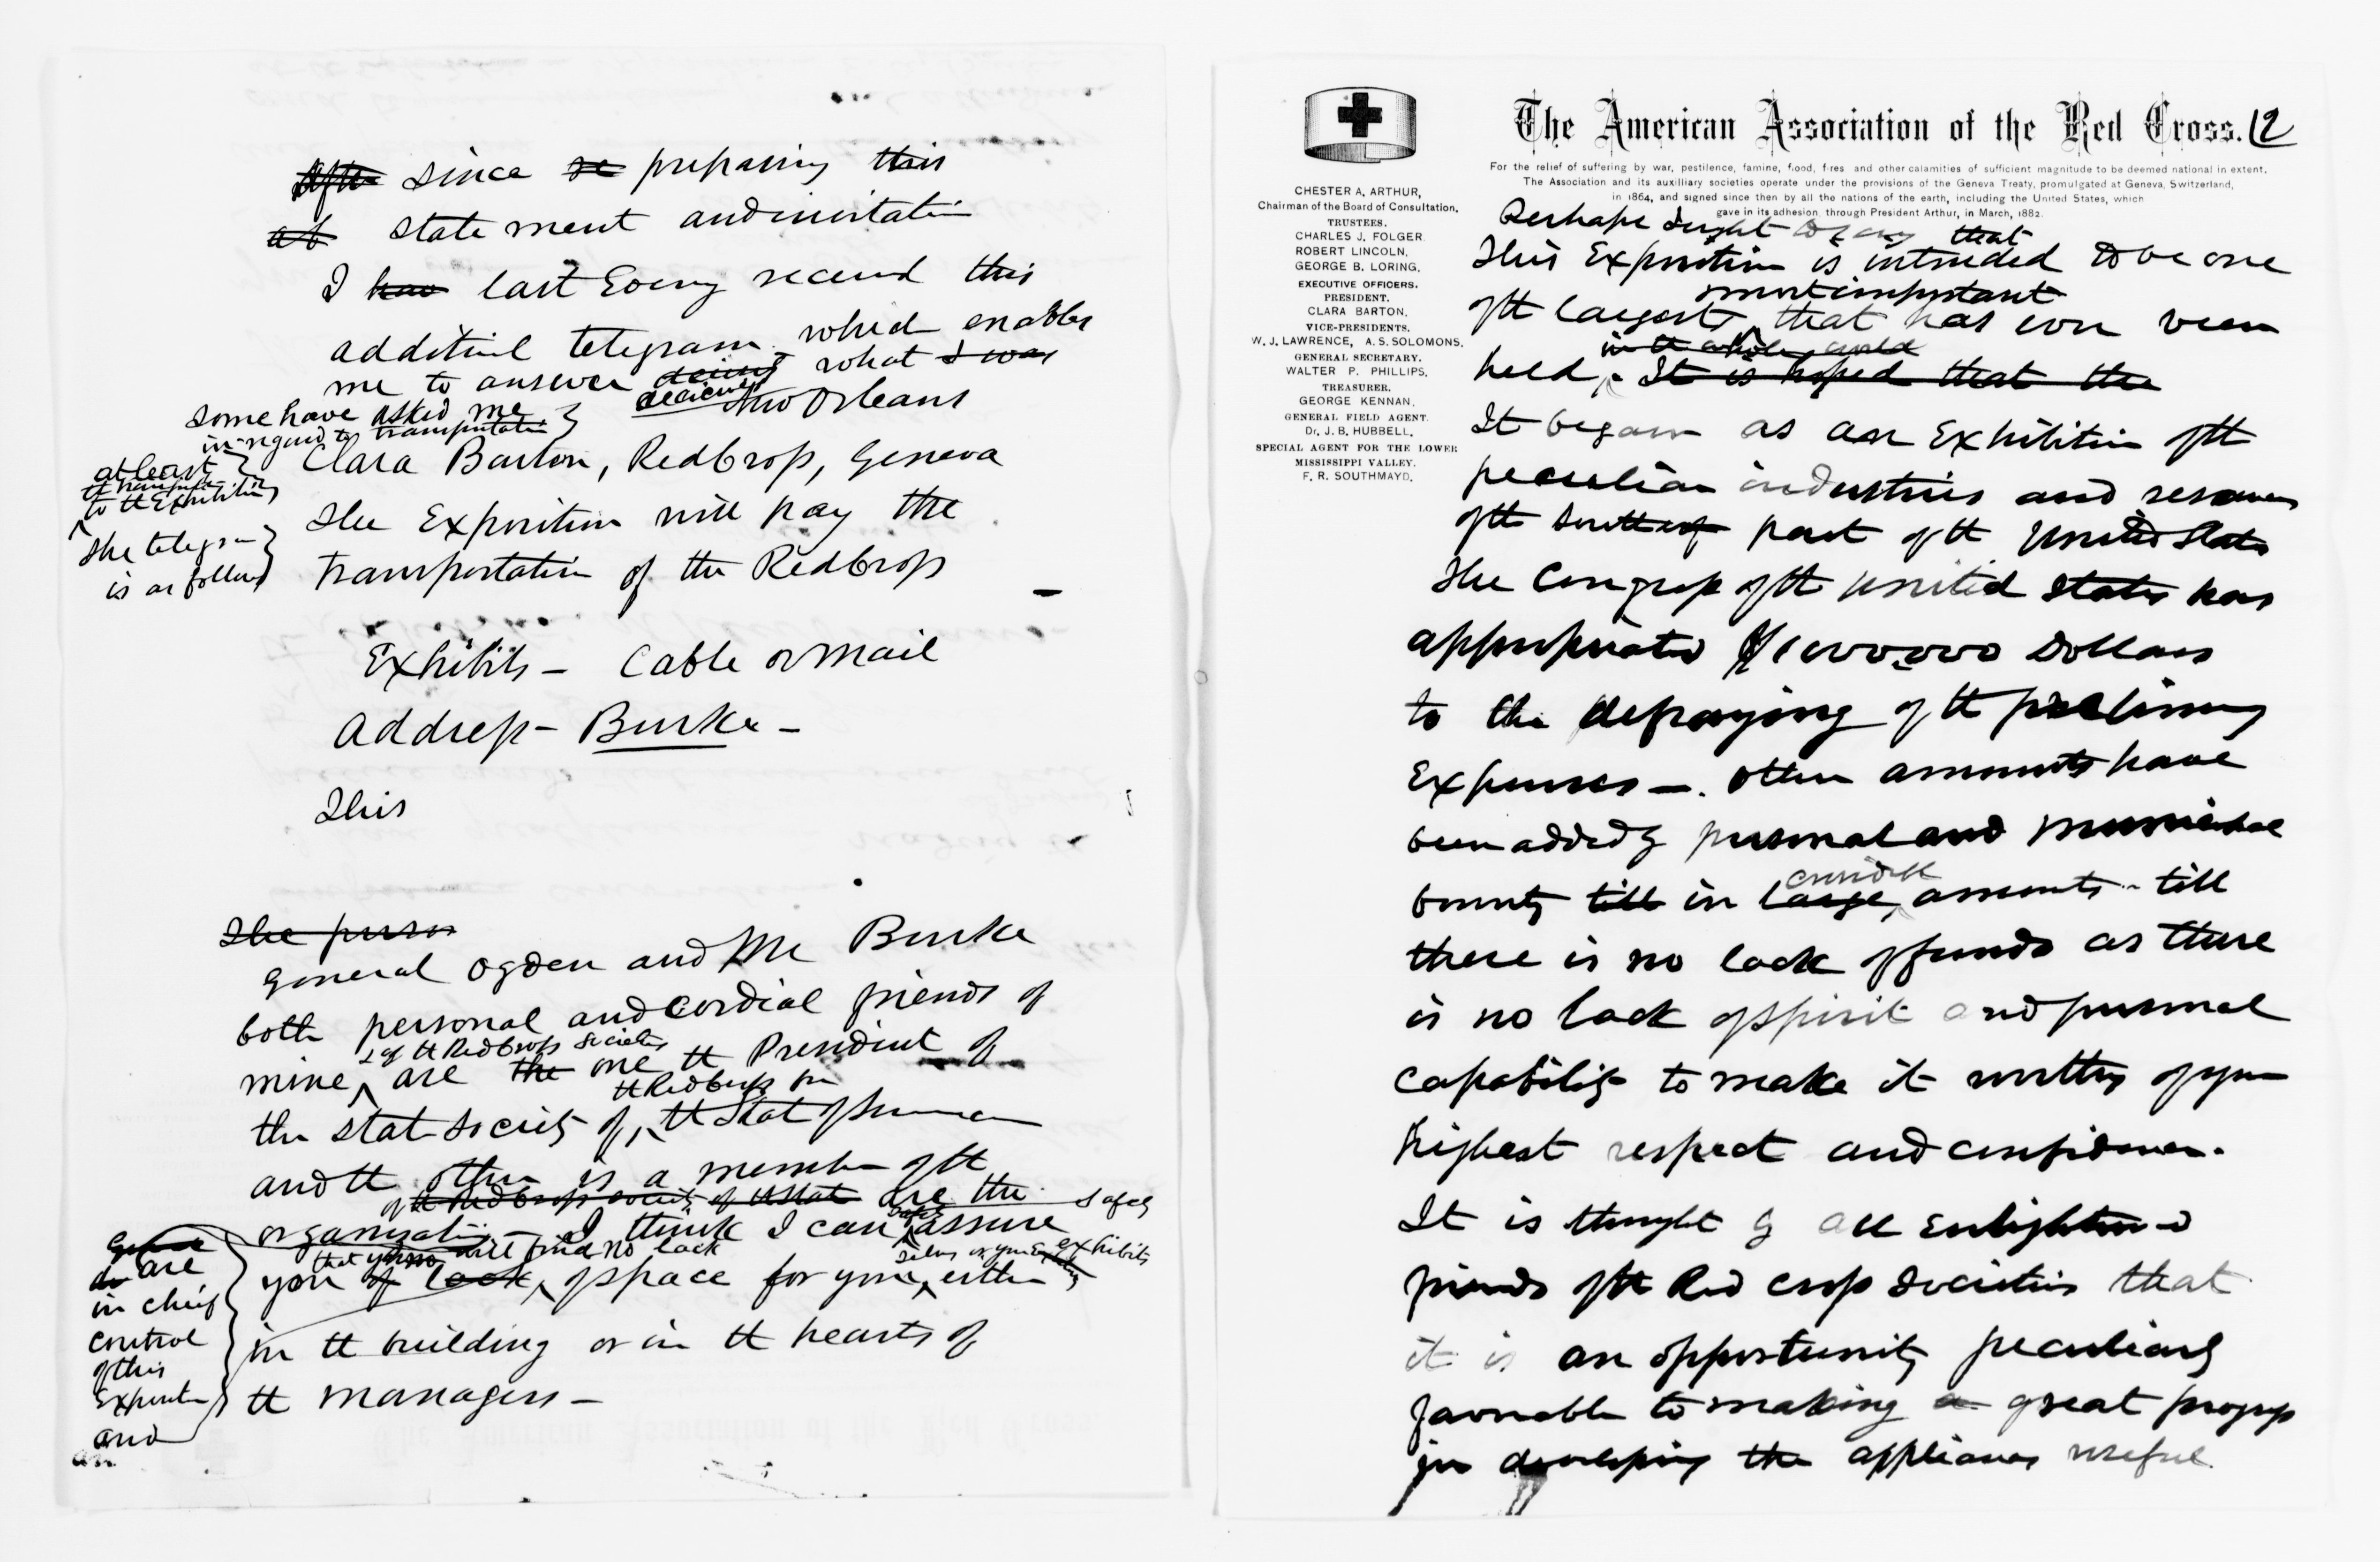 since preparing this
statement and invitation
I last Eveng received this
additional telegram which enables
me to answer what I was
New Orleans
some have asked me
in regard to transportation
at least
to the Exhibition
The telegram
is as follows
Clara Barton, Red Cross, Geneva
The Exposition will pay the
transportation of the Red Cross
Exhibits – Cable or mail
Address – Burke –
This
The person
General Ogden and Mr Burke
both personal and cordial friends of
mine, are the one the President of
& of the Red Cross Societies
the Red Cross for
the state society of, the State of
and the other is a member of the
of the Red Cross society of the state are the safely
organization – I think I can assure
that you will find no lack
you of lack of space for your either
exhibits
are
in chief
control
of this
Exposition
and
in the building or in the hearts of
the managers –
The American Association of the Red Cross. 12
For the relief of suffering by war, pestilence, famine, flood, fires and other calamities of sufficient magnitude to be deemed national in extent.
The Association and its auxilliary societies operate under the provisions of the Geneva Treaty, promulgated at Geneva, Switzerland,
in 1864, and signed since then by all the nations of the earth, including the United States, which
gave in its adhesion through President Arthur, in March, 1882.
CHESTER A. ARTHUR,
Chairman of the Board of Consultation.
TRUSTEES.
CHARLES J. FOLGER
ROBERT LINCOLN,
GEORGE B. LORING.
EXECUTIVE OFFICERS.
PRESIDENT.
CLARA BARTON.
VICE-PRESIDENTS.
W. J. LAWRENCE, A. S. SOLOMONS.
GENERAL SECRETARY.
WALTER P. PHILLIPS.
TREASURER.
GEORGE KENNAN.
GENERAL FIELD AGENT.
Dr. J. B. HUBBELL.
SPECIAL AGENT FOR THE LOWER
MISSISSIPPI VALLEY.
F. R. SOUTHMAYD.
Perhaps I ought to say that
This Exposition is intended to be one
most important
of the largest, that has ever been
in the whole world
held, It is hoped that the
It began as an Exhibition of the
peculiar industries and resources
of the Southern part of the United States
The Congress of the United States has
appropriated $1000,000 Dollars
to the defraying of the preliminary
Expenses –. Other amounts have
been added by personal and municipal
bounty till in large, amounts – till
there is no lack of funds as there
is no lack of spirit and personal
capability to make it worthy of your
highest respect and confidence.
It is thought by all Enlightened
friends of the Red Cross Societies that
it is an opportunity peculiarly
favorable to making a great progress
in developing the appliances useful